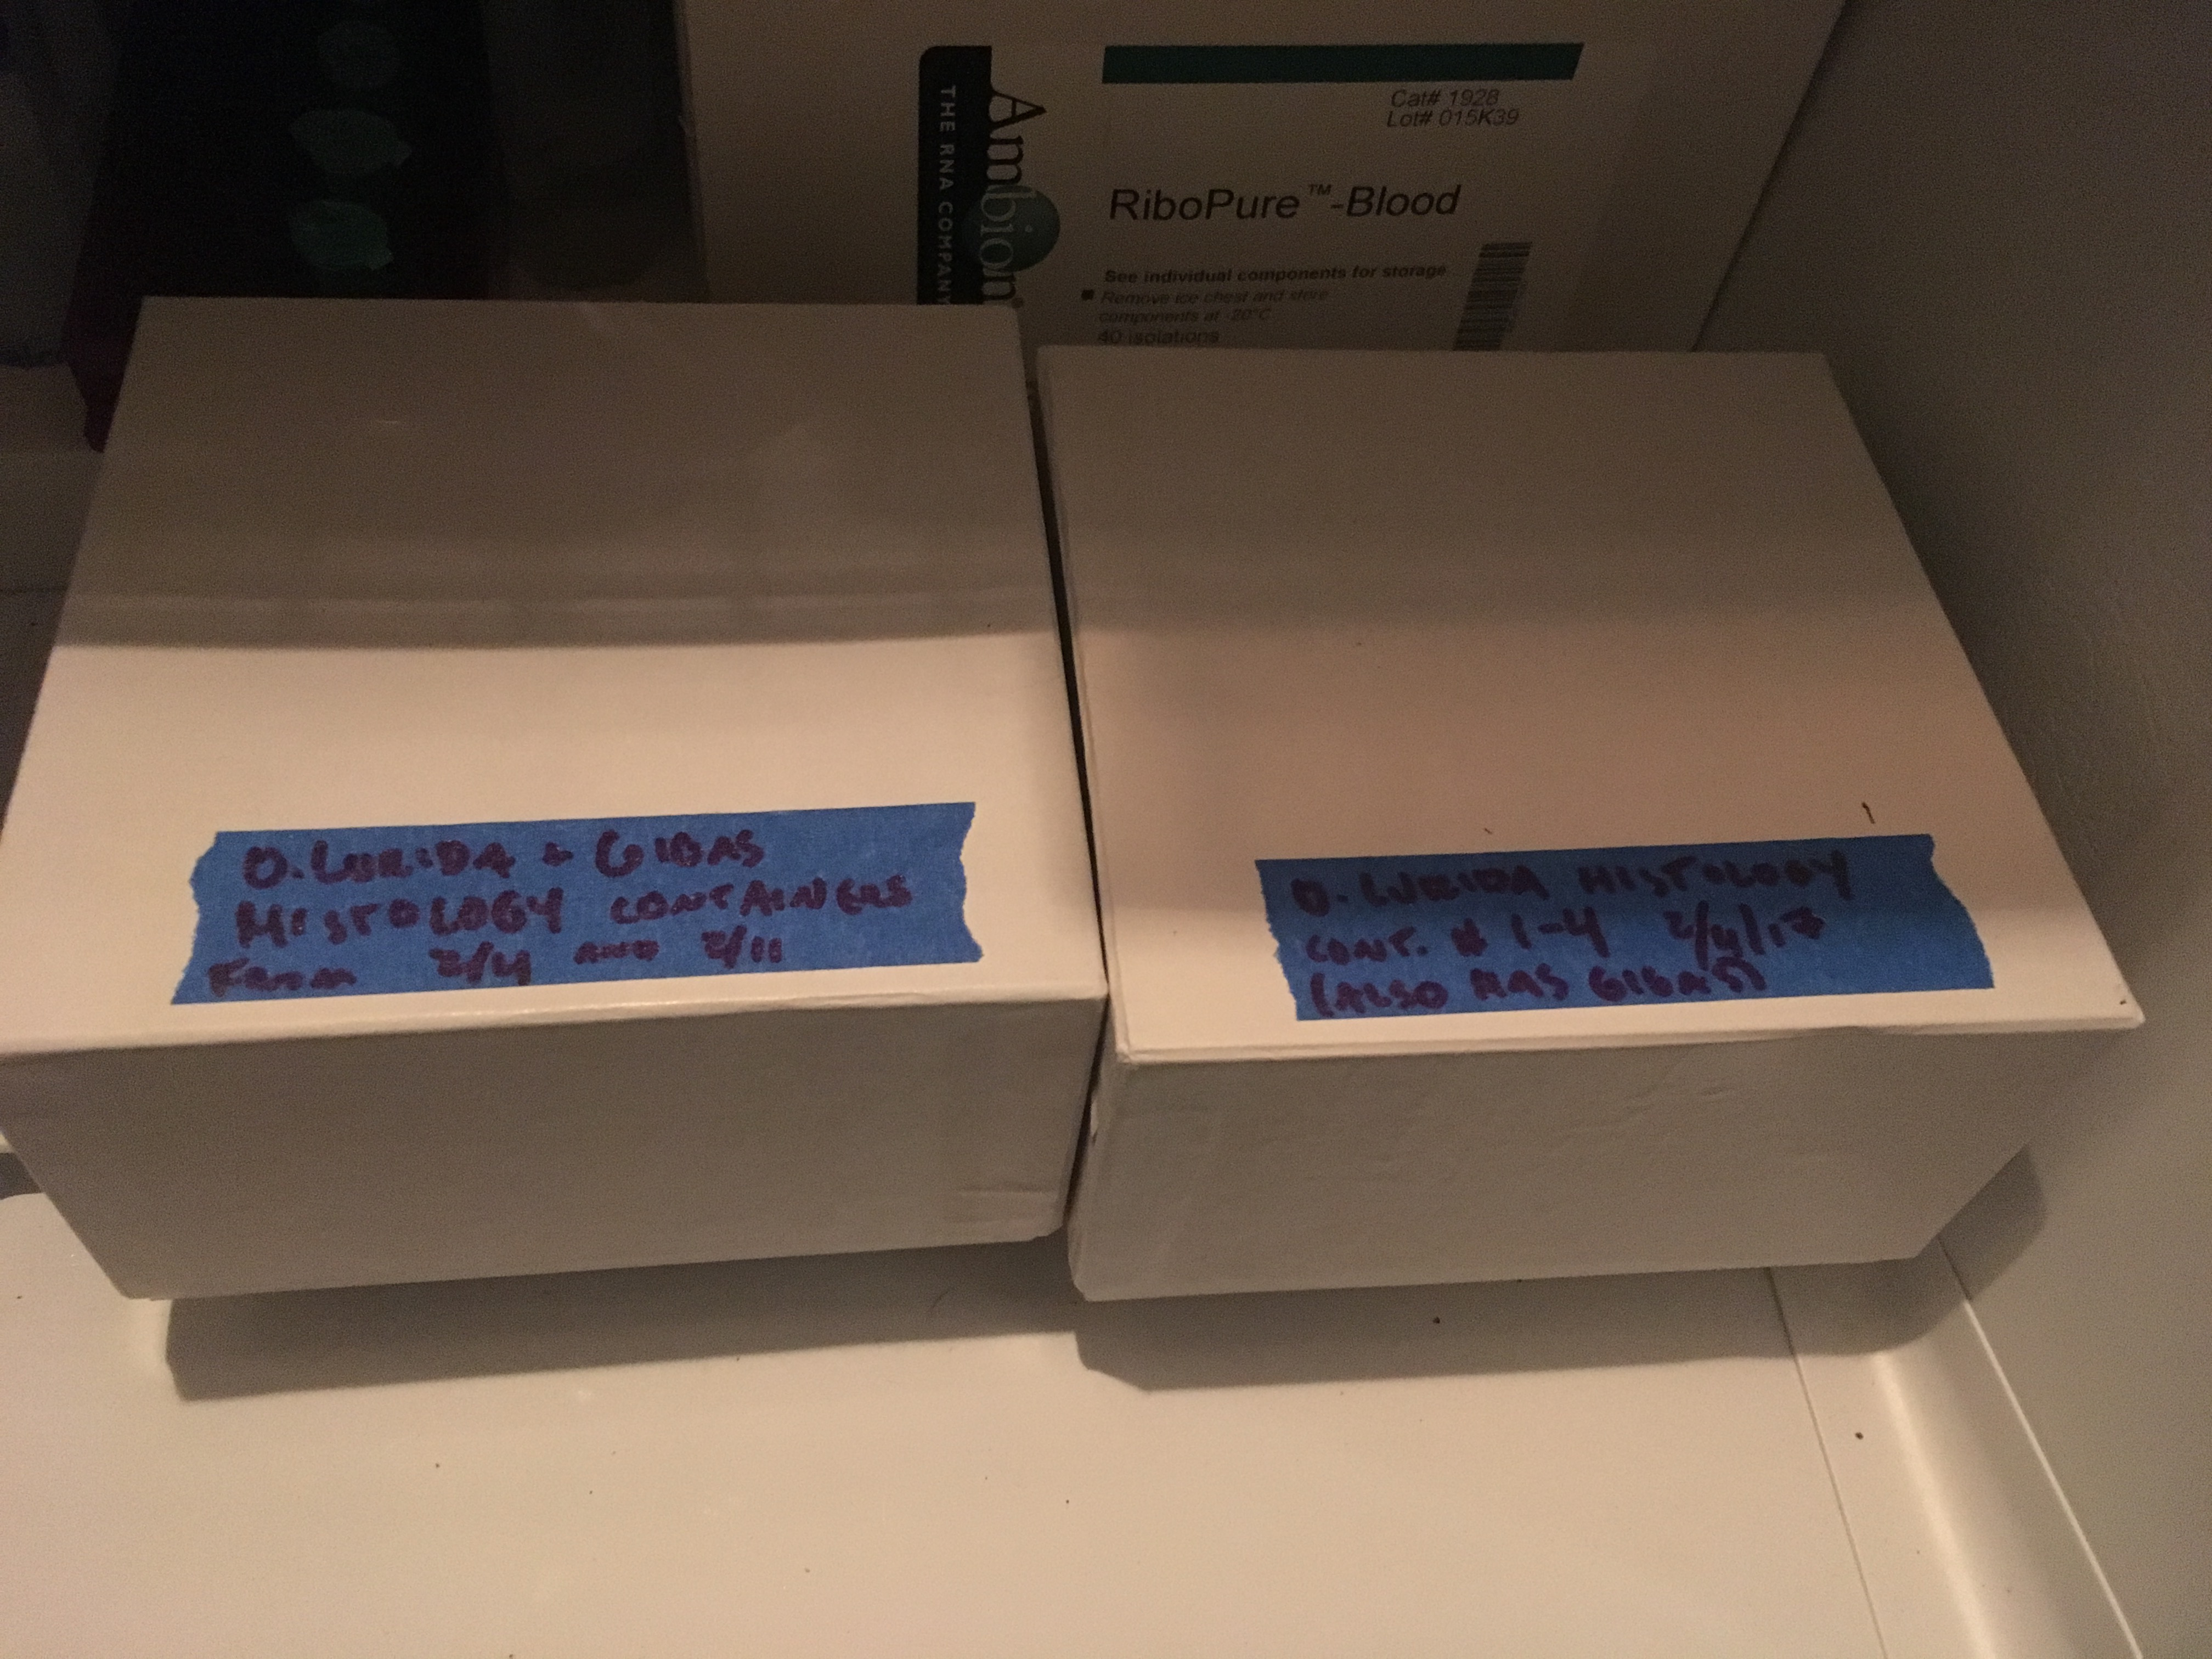 Ambion
THE RNA COMPANY
Cat# 1928
Lot# 015K39
RiboPure™-Blood
See individual components for storage
■ Remove ice chest and store
components at -20°C
40 isolations
O. LURIDA & GIGAS
HISTOLOGY CONTAINERS
FROM 2/4 AND 2/11
O. LURIDA HISTOLOGY
CONT. # 1-4 2/4/17
(ALSO HAS GIGAS)